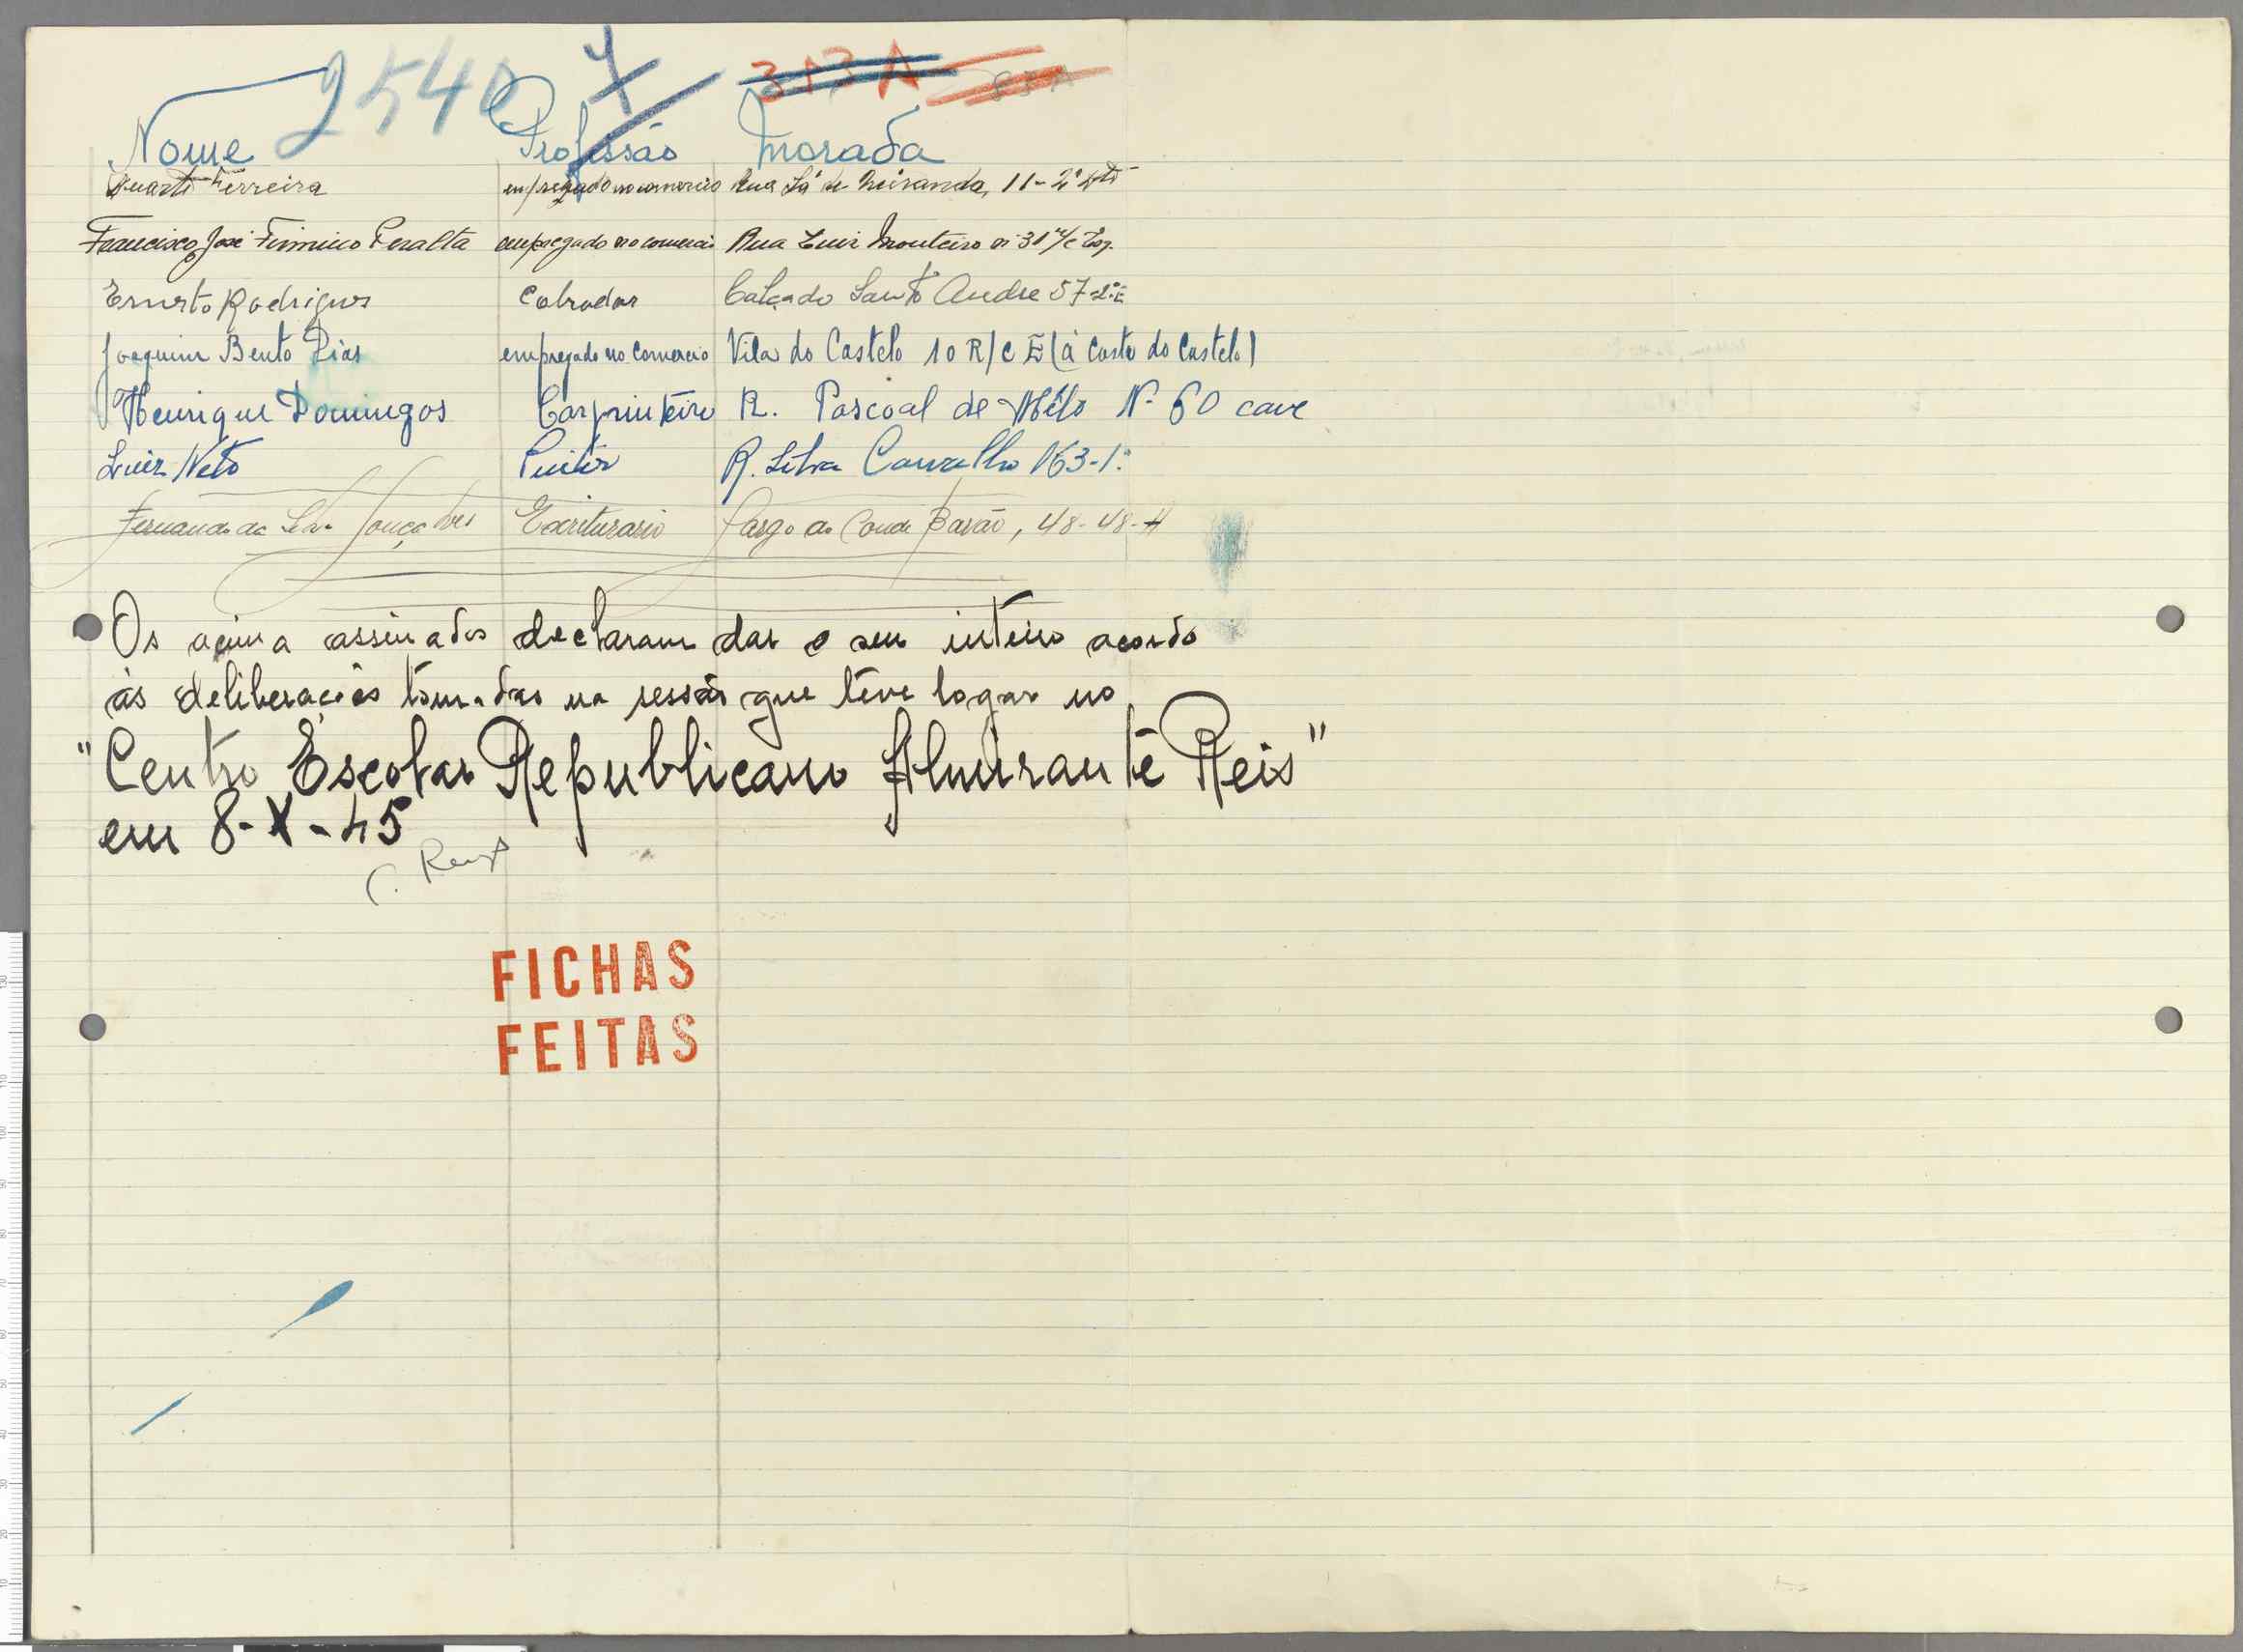 2540 4 313A 83A
Nome Profissão Morada
Duarte Ferreira empregado no comercio Rua Sá de Miranda, 11-2º Dtº
Francisco José Firmino Peralta empregado no comercio Rua Luiz Monteiro nº 31 r/c Esq.
Ernesto Rodrigues Cobrador Calçado Santo Andre 57-2º E
Joaquim Bento Dias empregado no Comercio Vila do Castelo 10 R/C E (à Costa do Castelo)
Henrique Domingos Carpinteiro R. Pascoal de Mélo Nº 60 cave
Luiz Neto Pintor R. Silva Carvalho 163-1º
Fernando da Silva Gonçalves Escriturario Largo do Conde Barão, 48-48-A
Os acima assinados declaram dar o seu inteiro acordo
ás deliberações tomadas na sessão que teve logar no
"Centro Escolar Republicano Almirante Reis"
em 8-X-45
C. Reis
FICHAS
FEITAS